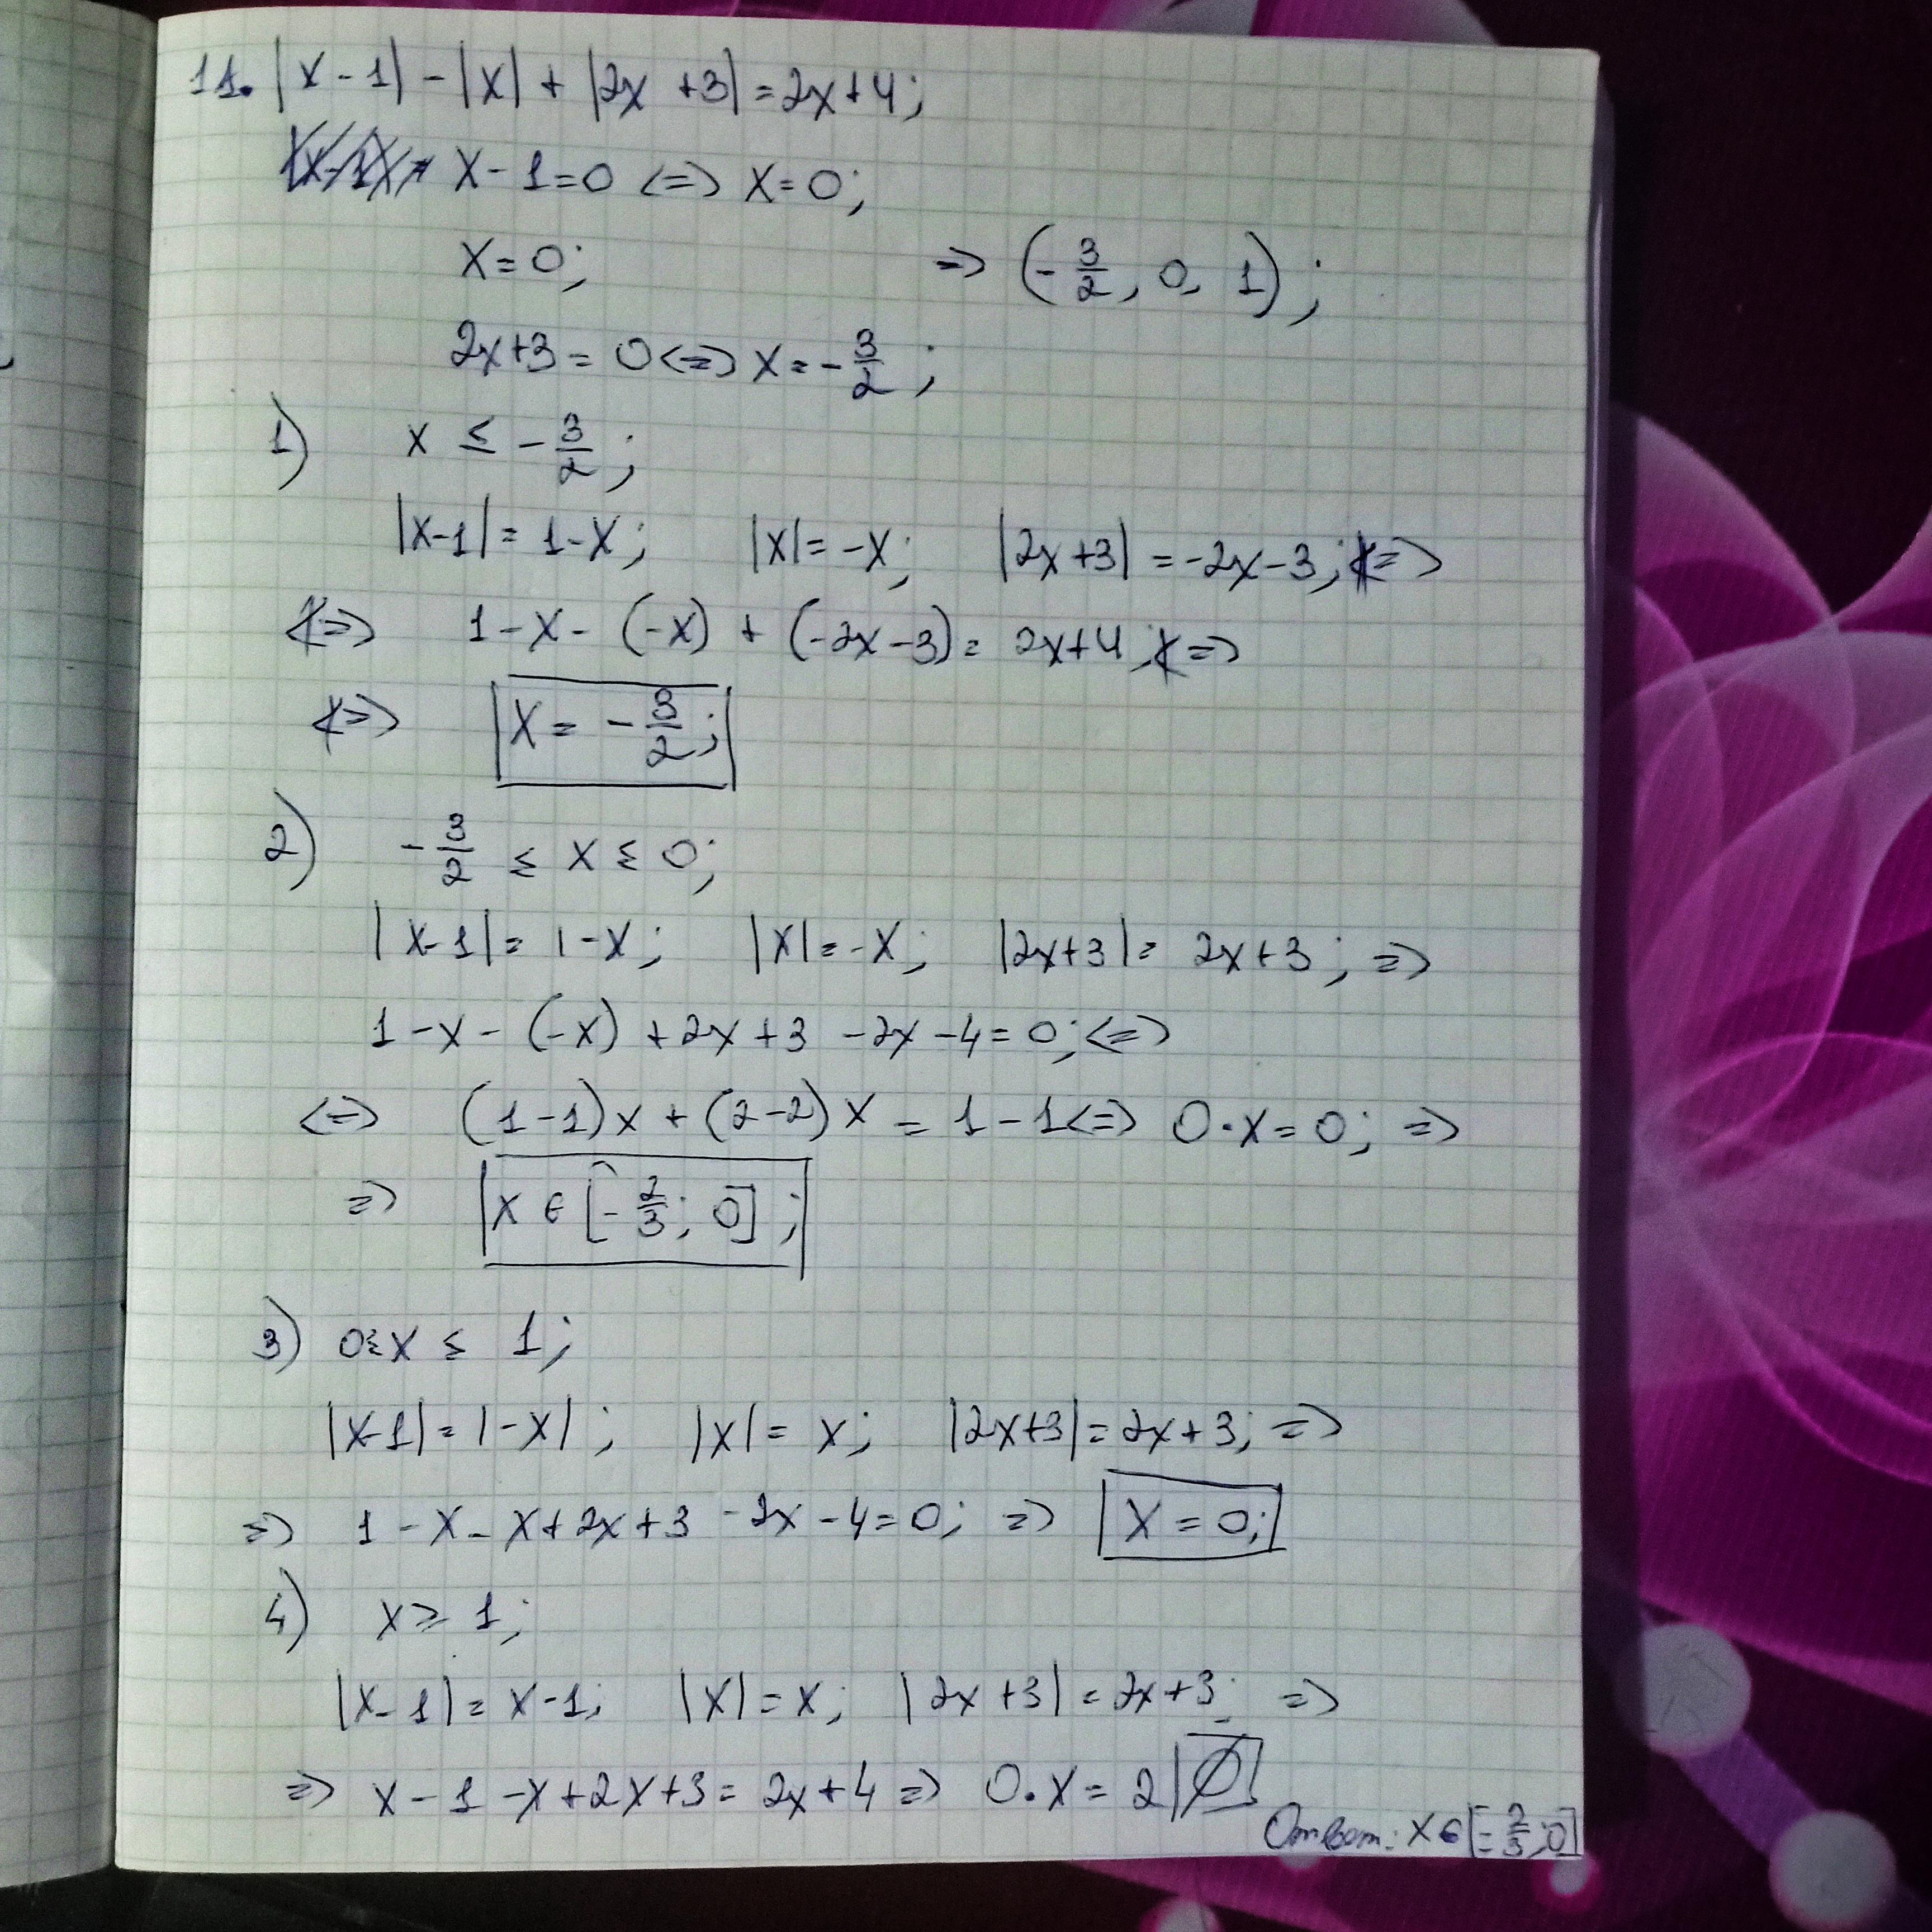 11. |x-1| - |x| + |2x+3| = 2x+4;
x-1=0 <=> x=0;
x=0; => (-3/2, 0, 1);
2x+3=0 <=> x=-3/2;
1) x ≤ -3/2;
|x-1|=1-x; |x|=-x; |2x+3|=-2x-3; =>
=> 1-x-(-x)+(-2x-3)=2x+4; =>
=> x=-3/2;
2) -3/2 ≤ x ≤ 0;
|x-1|=1-x; |x|=-x; |2x+3|=2x+3; =>
1-x-(-x)+2x+3-2x-4=0; <=>
<=> (1-1)x+(2-2)x=1-1 <=> 0·x=0; =>
=> x ∈ [-2/3; 0];
3) 0≤x≤1;
|x-1|=1-x|; |x|=x; |2x+3|=2x+3; =>
=> 1-x-x+2x+3-2x-4=0; => x=0;
4) x≥1;
|x-1|=x-1; |x|=x; |2x+3|=2x+3; =>
=> x-1-x+2x+3=2x+4 => 0·x=2 | ∅
Ответ: x ∈ [-2/3; 0]